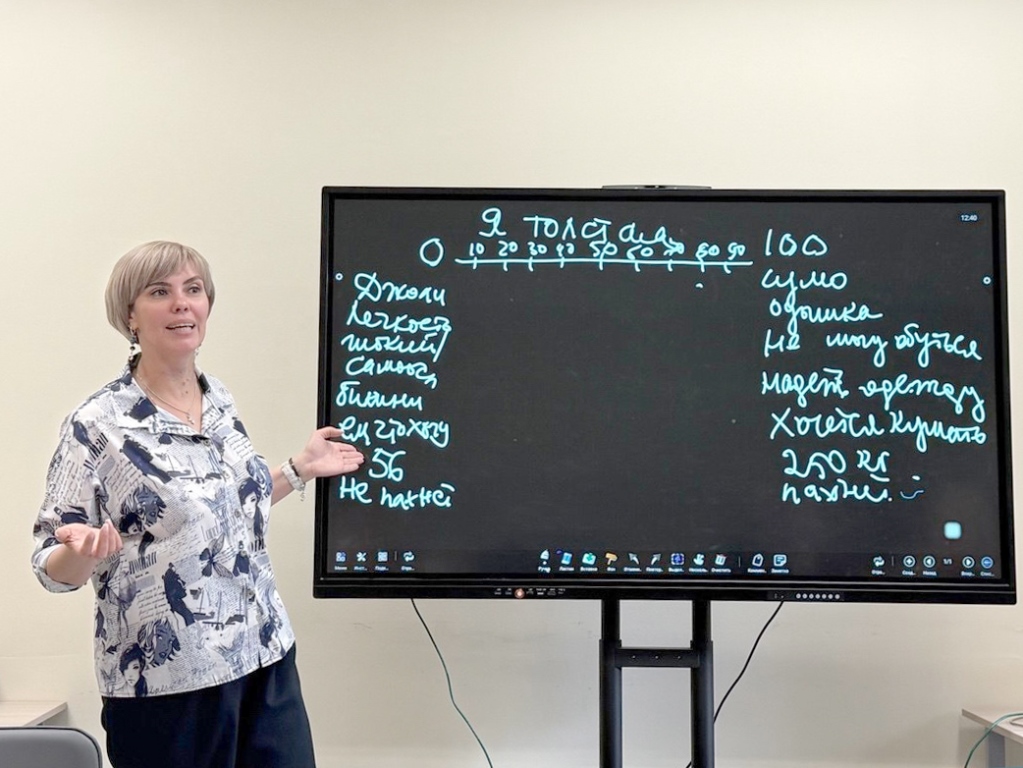 Я толстая
0 10 20 30 40 50 60 70 80 90 100
Джоли
Легкость
гибкий/
самооц
бикини
ем что хочу
56
Не пахнет
сумо
одышка
Не могу обуться
надеть одежду
Хочется кушать
250 кг
пахнет
12:40
1/1